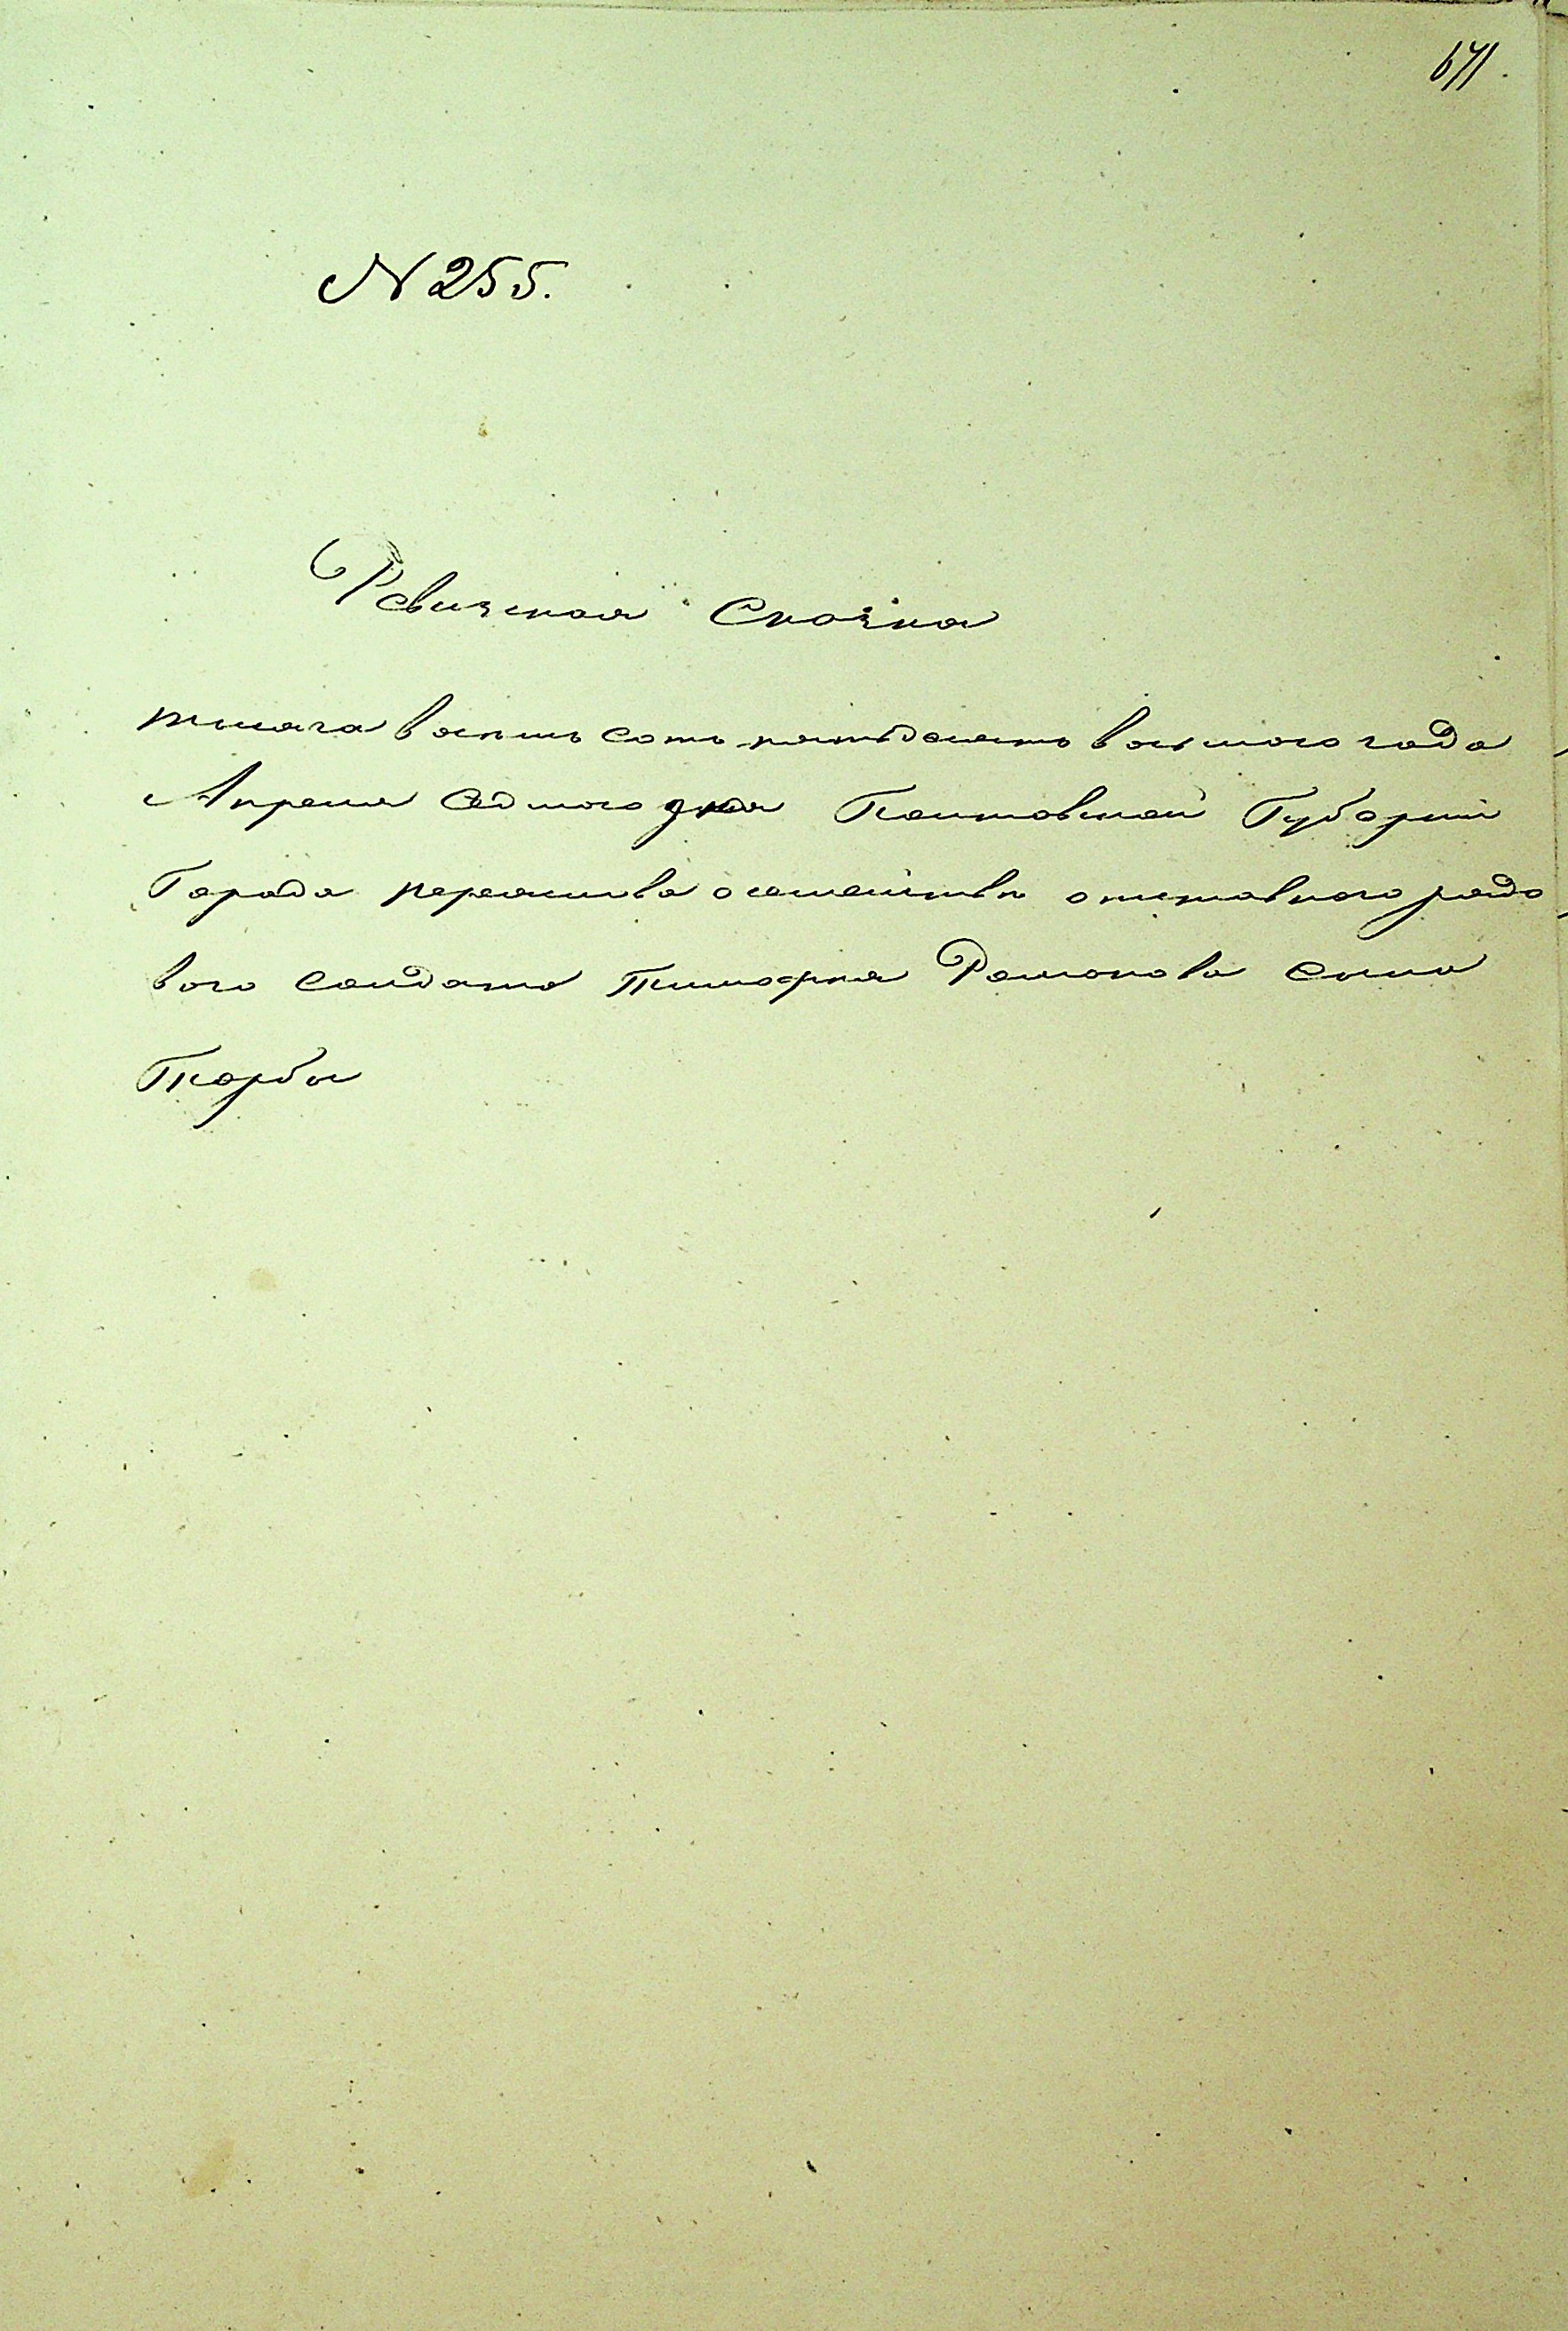 671.
N 255.
Ревизская Сказка
тысяча восемь сотъ пятьдесятъ восьмого года
Апреля Седмого дня Полтавской Губерніи
Города переяслова о семействѣ отставного рядо
вого Солдата Тимофея Романова сына
Торбы